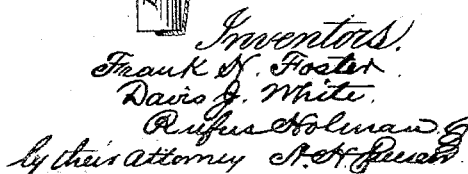 Inventors.
Frank N. Foster.
Davis J. White.
Rufus Holman,
by their attorney